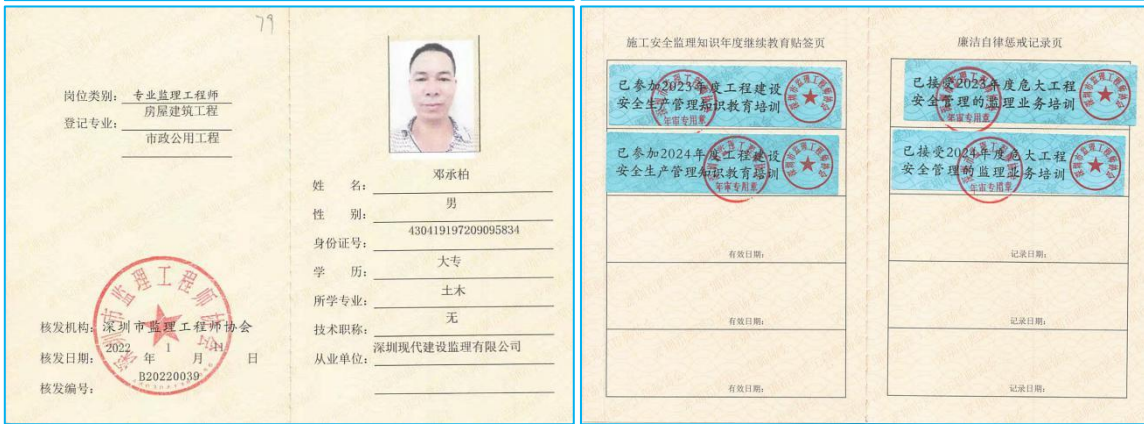 79
岗位类别：专业监理工程师
登记专业：房屋建筑工程
市政公用工程
核发机构：深圳市监理工程师协会
核发日期：2022 年 1 月 11 日
核发编号：B20220039
深圳市监理工程师协会
姓 名：邓承柏
性 别：男
身份证号：430419197209095834
学 历：大专
所学专业：土木
技术职称：无
从业单位：深圳现代建设监理有限公司
施工安全监理知识年度继续教育贴签页
已参加2023年度工程建设
安全生产管理知识教育培训
年审专用章
已参加2024年度工程建设
安全生产管理知识教育培训
年审专用章
有效日期：
有效日期：
有效日期：
廉洁自律惩戒记录页
已接受2023年度危大工程
安全管理的监理业务培训
年审专用章
已接受2024年度危大工程
安全管理的监理业务培训
年审专用章
记录日期：
记录日期：
记录日期：